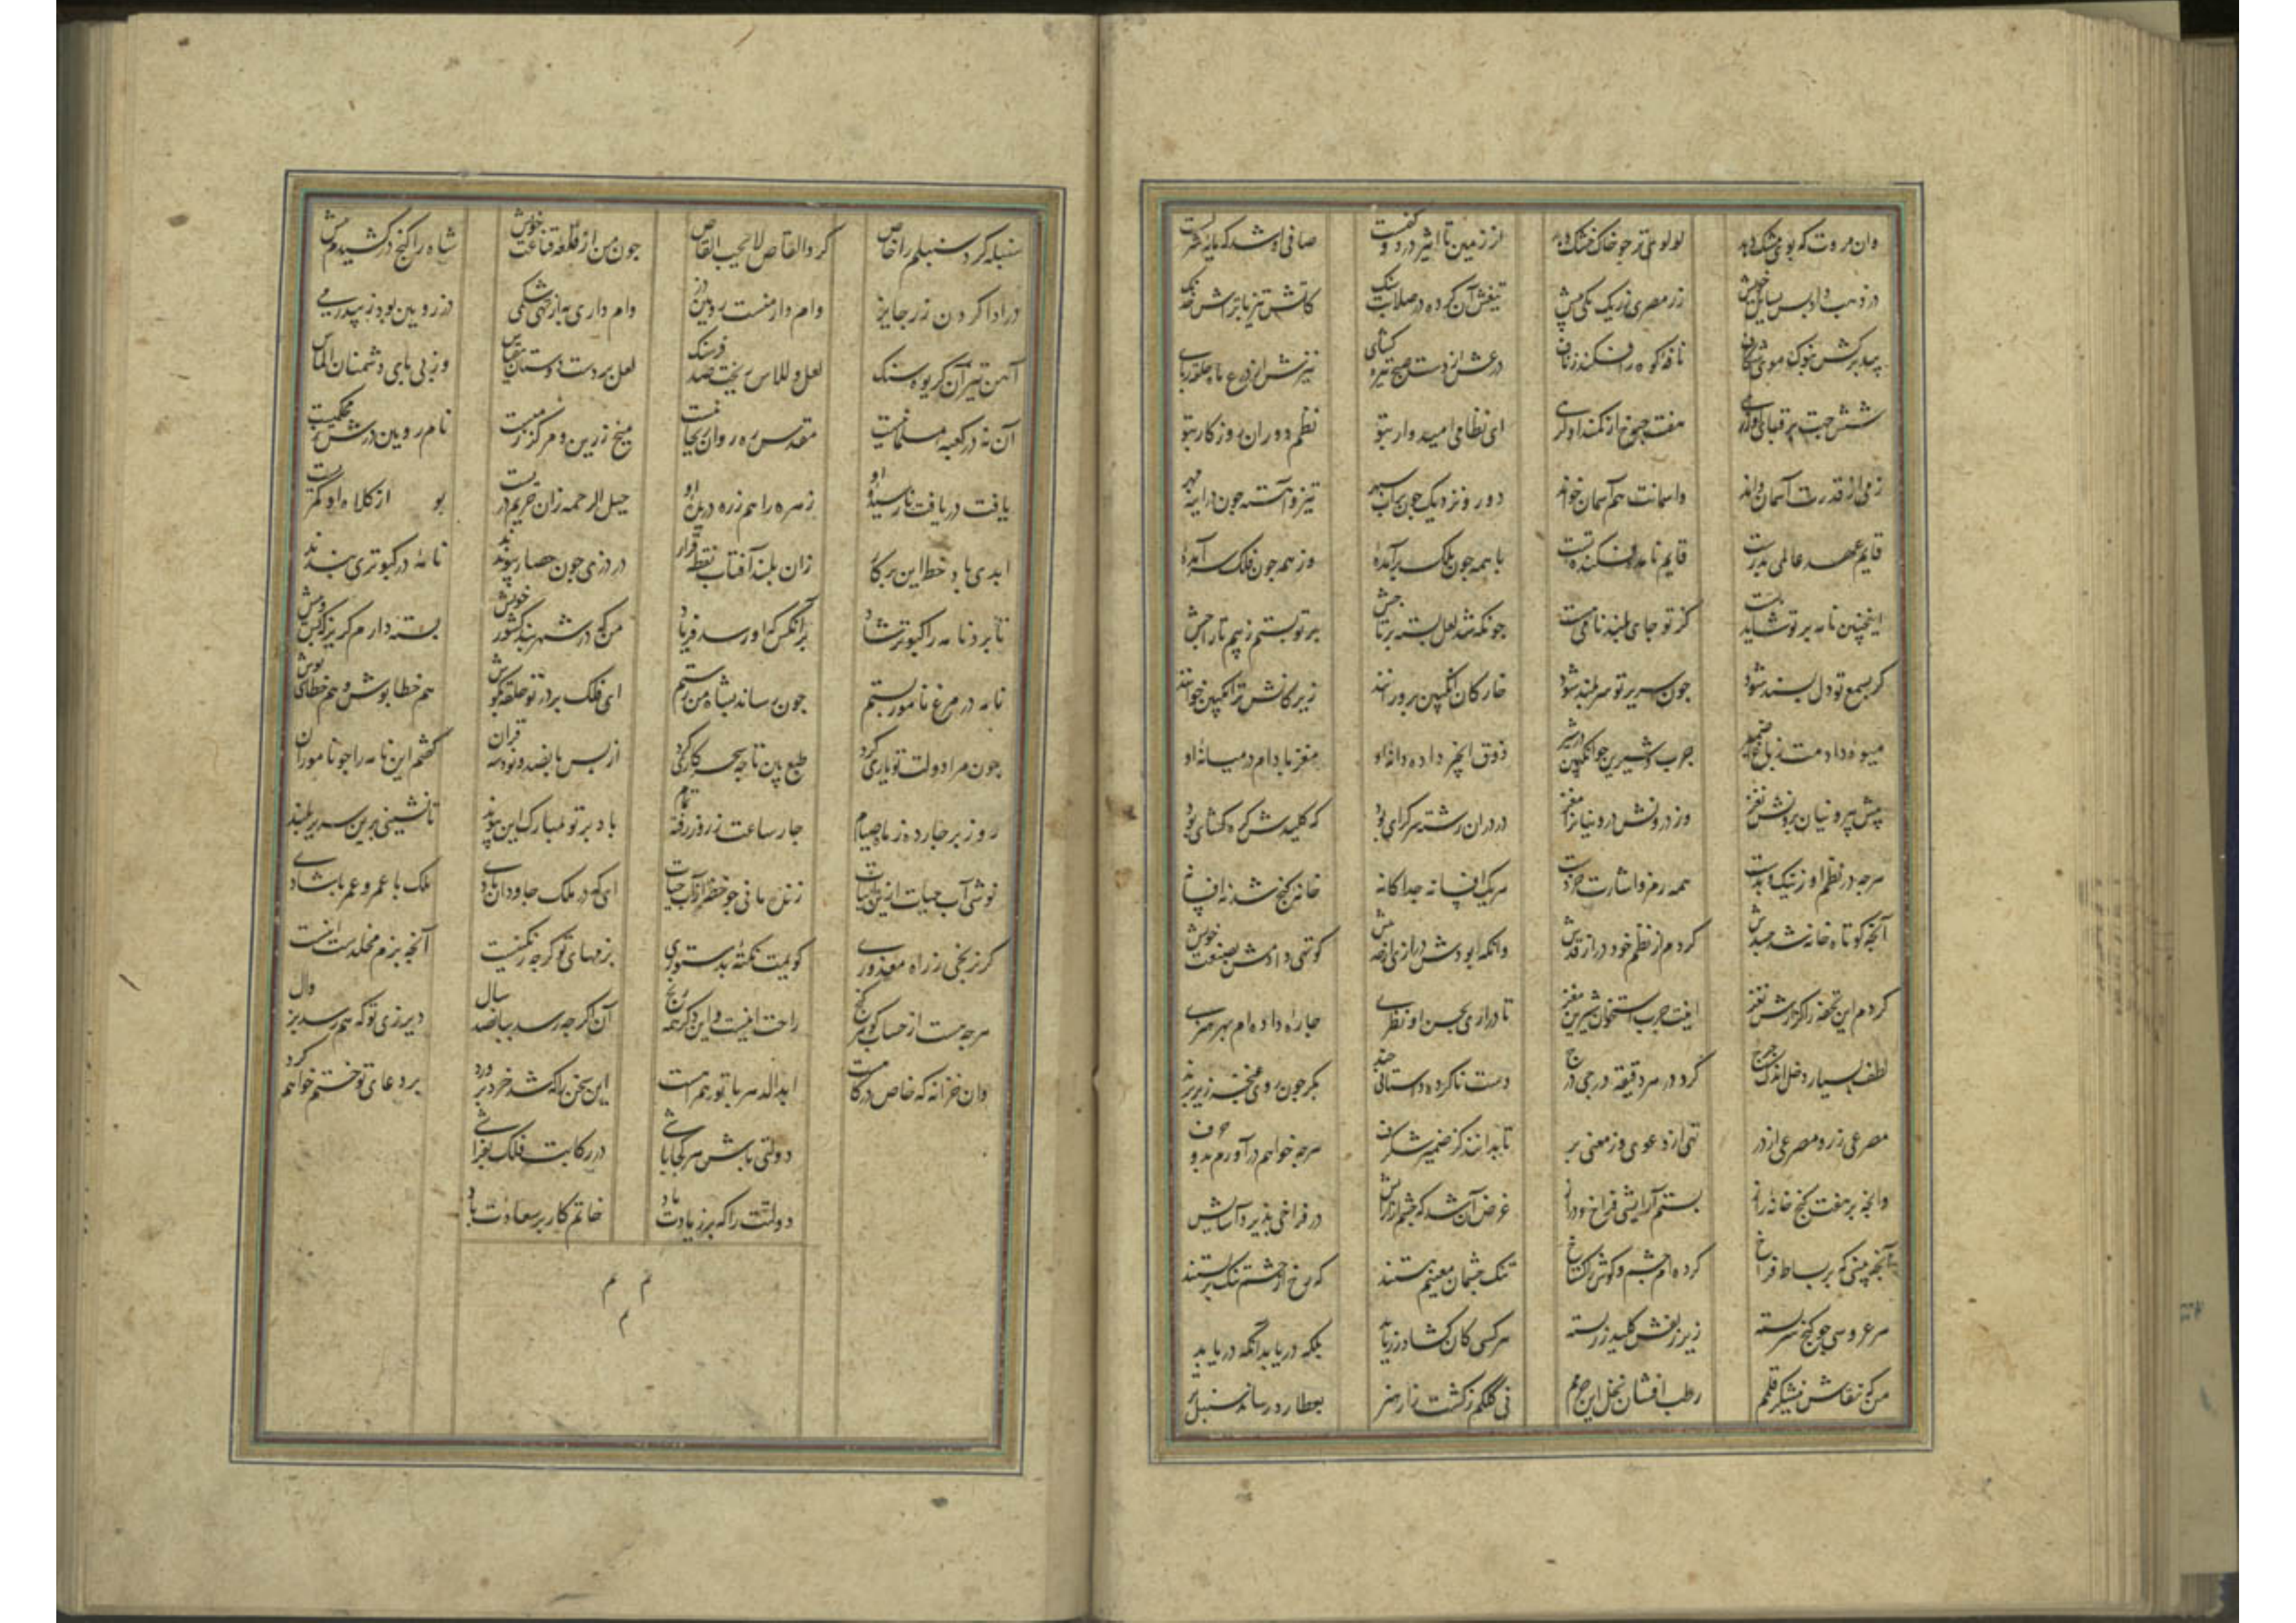 وان مروت که بوی مشک دهد لولوی تر جو خاک خشک دهد از زمین تا اثیر درد و کفست صافی او شد که مایه شرفست
در ذهب دادنش بسایل خویش زر مصری ز ریک مکی بیش تیغش آن کرده در صلابت سنک کاتش تیز با تراش خدنک
بید برکش بنوک موی شکاف نافه کوه را فکنده ز ناف درعش از دست صبح تیره کشای نیزش از درع ماه حلقه ربای
شش جهت بر قبای او زرهی هفت جرخ از کمند او کرهی ای نظامی امیدوار بتو نظم دوران روزکار بتو
زمی از قدرت آسمان داند واسمانت هم آسمان خواند دور و نزدیک جون بر آب سپهر تیز و آهسته جون در اینه مهر
قایم عهد عالمی بدرست قایم نا فکنده تست با همه جون ملک برآمدهٔ وز همه جون فلک سر آمدهٔ
اینچنین نامه بر تو شاید بست کز تو جای بلند نامی هست جونکه شد لعل بسته بر تاجش بر تو بستم ز بیم تاراجش
کر بسمع تو دلپسند شود جون سریر تو سر بلند شود خار کان انکبین برو رانند زیرکانش ترانکبین خوانند
میوهٔ دادمت ز باغ ضمیر جرب و شیرین جو انکبین در شیر ذوق انجیر داده دانهٔ او مغز بادام در میانهٔ او
پیش بیرونیان برونش نغز وز درونش درونیانرا مغز در دران رشته سرکرای بود که کلیدش کره کشای بود
هرجه در نظم او ز نیک و بدست همه رمز و اشارت خردست هر یک افسانه جداکانه خانه کنج شد نه افسانه
آنجه کوتاه خانه شد جسدش کردم از نظم خود دراز قدش وانکه بودش درازی از حد بیش کوتهی دادمش بصنعت خویش
کردم این تحفه را کزارش نغز اینت جرب استخوان شیرین مغز تا دراری بحسن او نظری جاره دادهام بهر هنری
لطف بسیار دخل اندک خرج کرد در هر دقیقه درجی درج دست ناکرده دلستانی جند بکر جون روی غنجه زیر برند
مصرعی زر و مصرعی از در تهی از دعوی وز معنی پر تا بدانند کز ضمیر شکرف هرجه خواهم درآورم بدو حرف
وانجه بر هفت کنج خانه راز بستم آرایشی فراخ و دراز غرض آن شد که جشم از آرایش در فراخی پذیرد آسایش
آنجه بینی که بر بساط فراخ کردهام جشم و کوش را کستاخ تنک جشمان معنیم هستند که رخ از جشم تنک بربستند
هر عروسی جو کنج سر بسته زیر زلفش کلید زر بسته هر کسی کان کشاد زر یابد بلکه در یابد آنکه دریابد
من که نقاش نیشکر قلمم رطب افشان نخل این حرمم نی کلکم ز کشت زار هنر بعطارد رساند سنبل تر
سنبله کرد سنبلم را خاص کردوالقاص لا یحب القاص جون من از قلعه قناعت خویش شاه را کنج درکشیدم پیش
در ادا کردن زر جایز وام دارمنست رویین دز وام داری نه از تهی شکمی دز رویین بود ز بی درمی
آهن تیز آن کریوه سنک لعل و الماس ریخت صد فرسنک لعل بر دست دوستان بقیاس وز پی پای دشمنان الماس
آن نه دز کعبه مسلمانیست مقدس ره روان روحانیست میخ زرین و مرکز زمیست نام رویین دزش ز محکمیست
یافت دریافت نارسیدهٔ او زهره را هم زره دریدهٔ او جبل الرحمه زان حریم درست بو از کلاه او کمرست
ابدی باد خط این پرکار زان بلند آفتاب نقطه قرار در دزی جون حصار پیوندند نامه در کبوتری بندند
تا برد نامه را کبوتر شاد بر آنکس که او رسد فریاد من که در شهربند کشور خویش بسته دارم کریزکه پس و پیش
نامه در مرغ نامور بستم جون رساند بشاه من رستم ای فلک بر در تو حلقه بکوش هم خطا پوش و هم خطایی پوش
جون مرا دولت تو یاری کرد طبع بین تا جه سحر کاری کرد از پس پانصد و نود سه قران کفتم این نامه را جو ناموران
روز بر جارده ز ماه صیام جار ساعت ز روز رفته تمام باد بر تو مبارک این پیوند تا نشینی برین سریر بلند
نوشی آب حیات ازین ابیات زنده مانی جو خضر از آب حیات ای که در ملک جاودان مادی ملک با عمر و عمر با شادی
کر نرنجی ز راه معذوری کویمت نکتهٔ بدستوری بزمهای تو کرجه رنکینست آنجه بزم مخلدست اینست
هرجه هست از حساب کوهر کنج راحت اینست و این دکر همه رنج آن اکرجه رسد بپانصد سال دیر زی تو که هم رسد بزوال
وان خزانه که خاص درکاهست ابدالدهر با تو همراهست این سخن را که شد خرد پرورد بر دعای تو ختم خواهم کرد
دولتی باش هر کجا باشی در رکابت فلک بفراشی
دولتت را که بر زیادت باد خاتم کار بر سعادت باد
م م
م